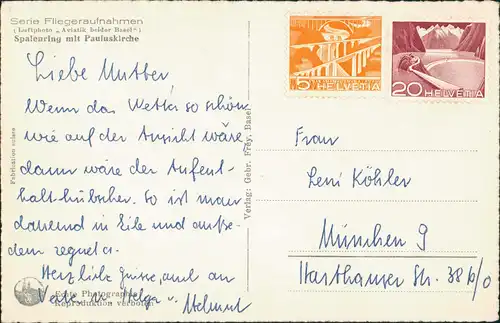 Serie Fliegeraufnahmen
(Luftphoto „Aviatik beider Basel")
Spalenring mit Pauluskirche
Liebe Mutter
Wenn das Wetter so schön
wie auf der Ansicht wäre,
dann wäre der Aufent-
halt hübscher. So ist man
dauernd in Eile und außer-
dem regnet es.
Herzliche Grüsse, auch an
u. Helga. Helmut
Echte Photographie
Reproduktion verboten
Fabrication suisse
Verlag: Gebr. Frey, Basel
5 HELVETIA
20 HELVETIA
Frau
Leni Köhler
München 9
Harthauser Str. 38 b/0